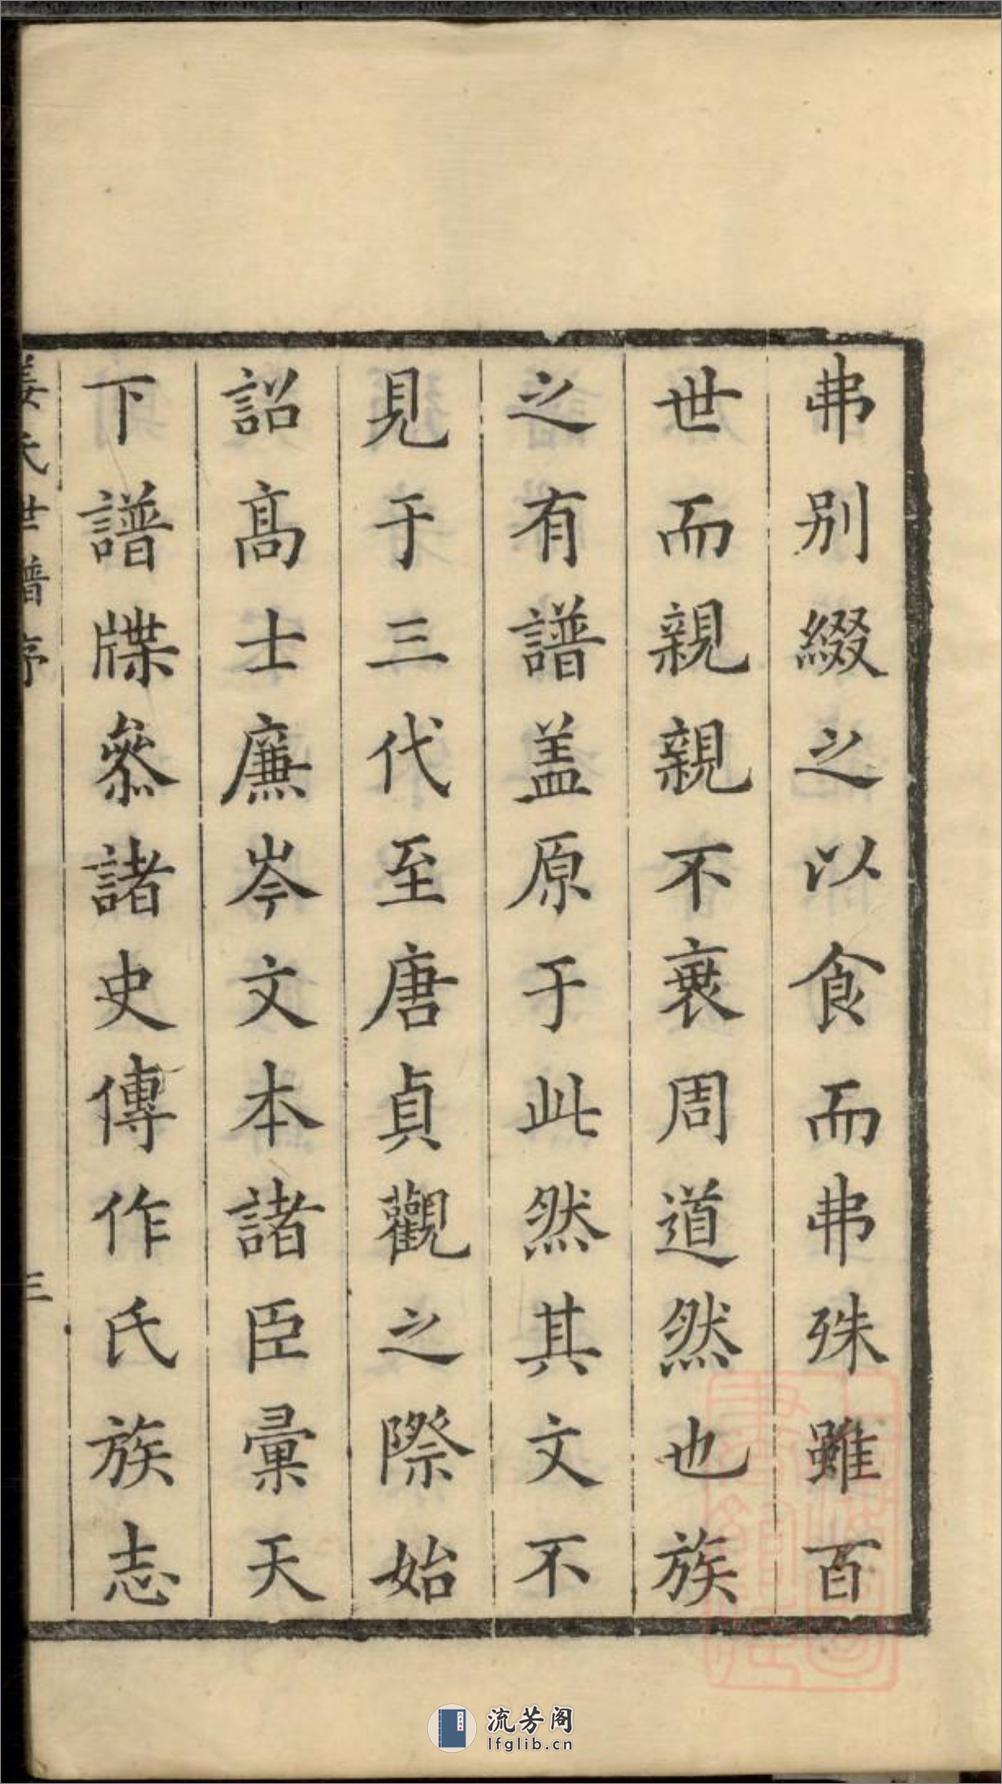 弗别綴之以食而弗殊雖百
世而親親不衰周道然也族
之有譜盖原于此然其文不
見于三代至唐貞觀之際始
詔髙士廉岑文本諸臣彙天
下譜牒叅諸史傳作氏族志
姜氏世譜序
三
流芳阁
lfglib.cn